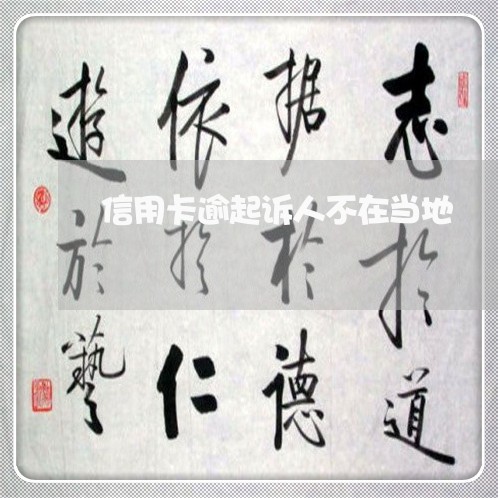 志於道
据於德
依於仁
遊於藝
信用卡逾起诉人不在当地